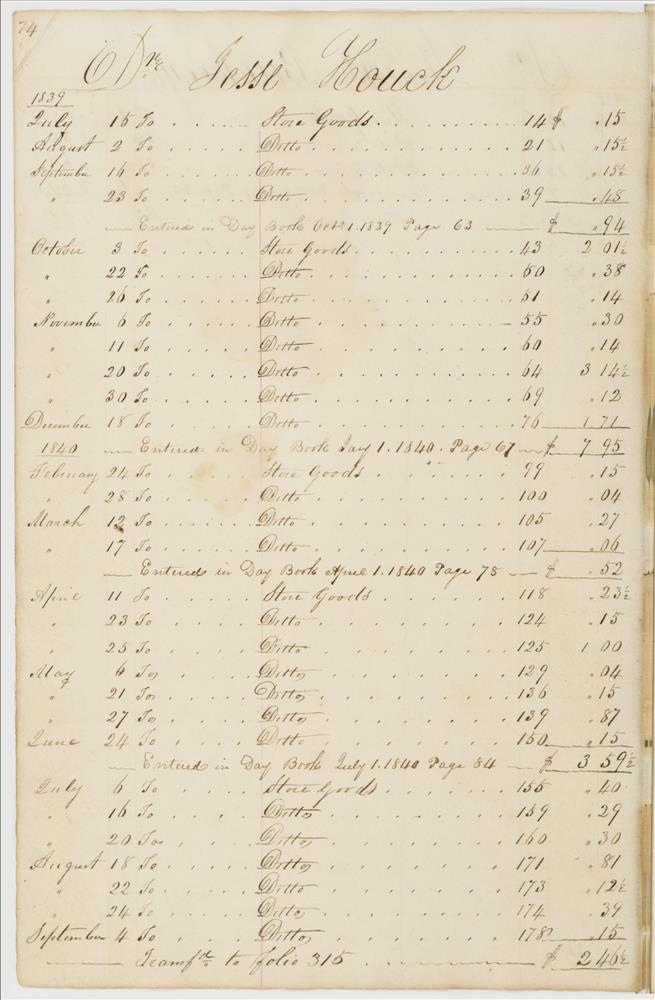 74
Dr. Jesse Houck
1839
July 15 To Store Goods 14 $ .15
August 2 To Ditto 21 .15½
September 16 To Ditto 36 .15½
" 23 To Ditto 39 .48
Entered in Day Book Octr 1. 1839 Page 63 $ .94
October 3 To Store Goods 43 2 01½
" 22 To Ditto 50 .38
" 26 To Ditto 51 .14
November 6 To Ditto 55 .30
" 11 To Ditto 60 .14
" 20 To Ditto 64 3 14½
" 30 To Ditto 69 .12
December 18 To Ditto 76 1 71
1840 Entered in Day Book Jany 1. 1840. Page 67 $ 7 95
February 24 To Store Goods 99 .15
" 28 To Ditto 100 .04
March 12 To Ditto 105 .27
" 17 To Ditto 107 .06
Entered in Day Book April 1. 1840 Page 78 $ .52
April 11 To Store Goods 118 .23½
" 23 To Ditto 124 .15
" 25 To Ditto 125 1 00
May 6 To Ditto 129 .04
" 21 To Ditto 136 .15
" 27 To Ditto 139 .87
June 24 To Ditto 150 .15
Entered in Day Book July 1. 1840 Page 84 $ 3 59½
July 6 To Store Goods 155 .40
" 16 To Ditto 159 .29
" 20 To Ditto 160 .30
August 18 To Ditto 171 .81
" 22 To Ditto 173 .12½
" 24 To Ditto 174 .39
September 4 To Ditto 178 .15
Transfd to folio 315 $ 2 46½